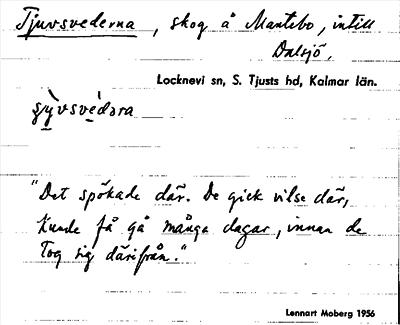 Tjuvsvederna, skog å Mantebo, intill
Dalsjö,
Locknevi sn, S. Tjusts hd, Kalmar län.
"Det spökade där. De gick vilse där,
Kunde få gå många dagar, innan de
Tog sig därifrån."
Lennart Moberg 1956